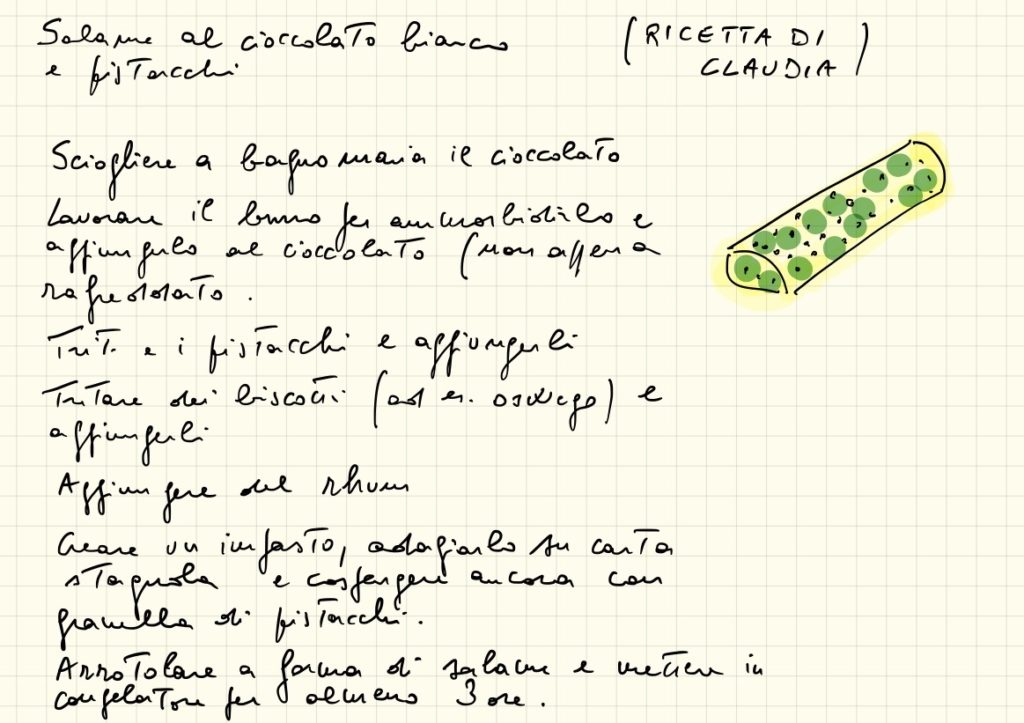 Salame al cioccolato bianco
e pistacchi
(RICETTA DI
CLAUDIA)
Sciogliere a bagnomaria il cioccolato
Lavorare il burro per ammorbidirlo e
aggiungerlo al cioccolato (non appena
raffreddato.
Trit. e i pistacchi e aggiungerli
Tritare dei biscotti (ad es. oswego) e
aggiungerli
Aggiungere del rhum
Creare un impasto, adagiarlo su carta
stagnola e cospargere ancora con
granella di pistacchi.
Arrotolare a forma di salame e mettere in
congelatore per almeno 3 ore.